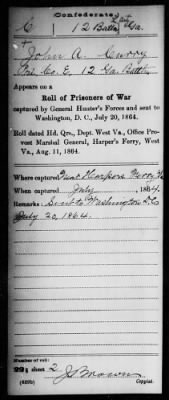 Confederate.
C 12 Battn Ga.
John A. Curry
Co. E, 12 Ga. Battn
Appears on a
Roll of Prisoners of War
captured by General Hunter's Forces and sent to
Washington, D. C., July 20, 1864.
Roll dated Hd. Qrs., Dept. West Va., Office Pro-
vost Marshal General, Harper's Ferry, West
Va., Aug. 11, 1864.
Where captured Ferry
When captured July, 1864.
Remarks: Sent to Washington D.C.
July 20, 1864.
Number of roll:
sheet 2
Copyist.